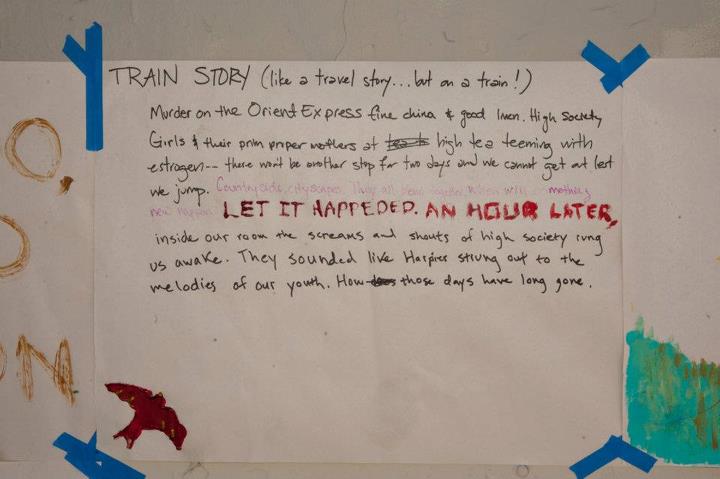 TRAIN STORY (like a travel story... but on a train!)
Murder on the Orient Express fine china & good linen. High Society
Girls & their prim proper mothers at high tea teeming with
estrogen-- there won't be another stop for two days and we cannot get out lest
we jump. Countryside, cityscapes. They all blend together when will mothers
new happen LET IT HAPPEDED. AN HOUR LATER,
inside our room the screams and shouts of high society rung
us awake. They sounded like Harpies strung out to the
melodies of our youth. How those days have long gone.
O,
ON